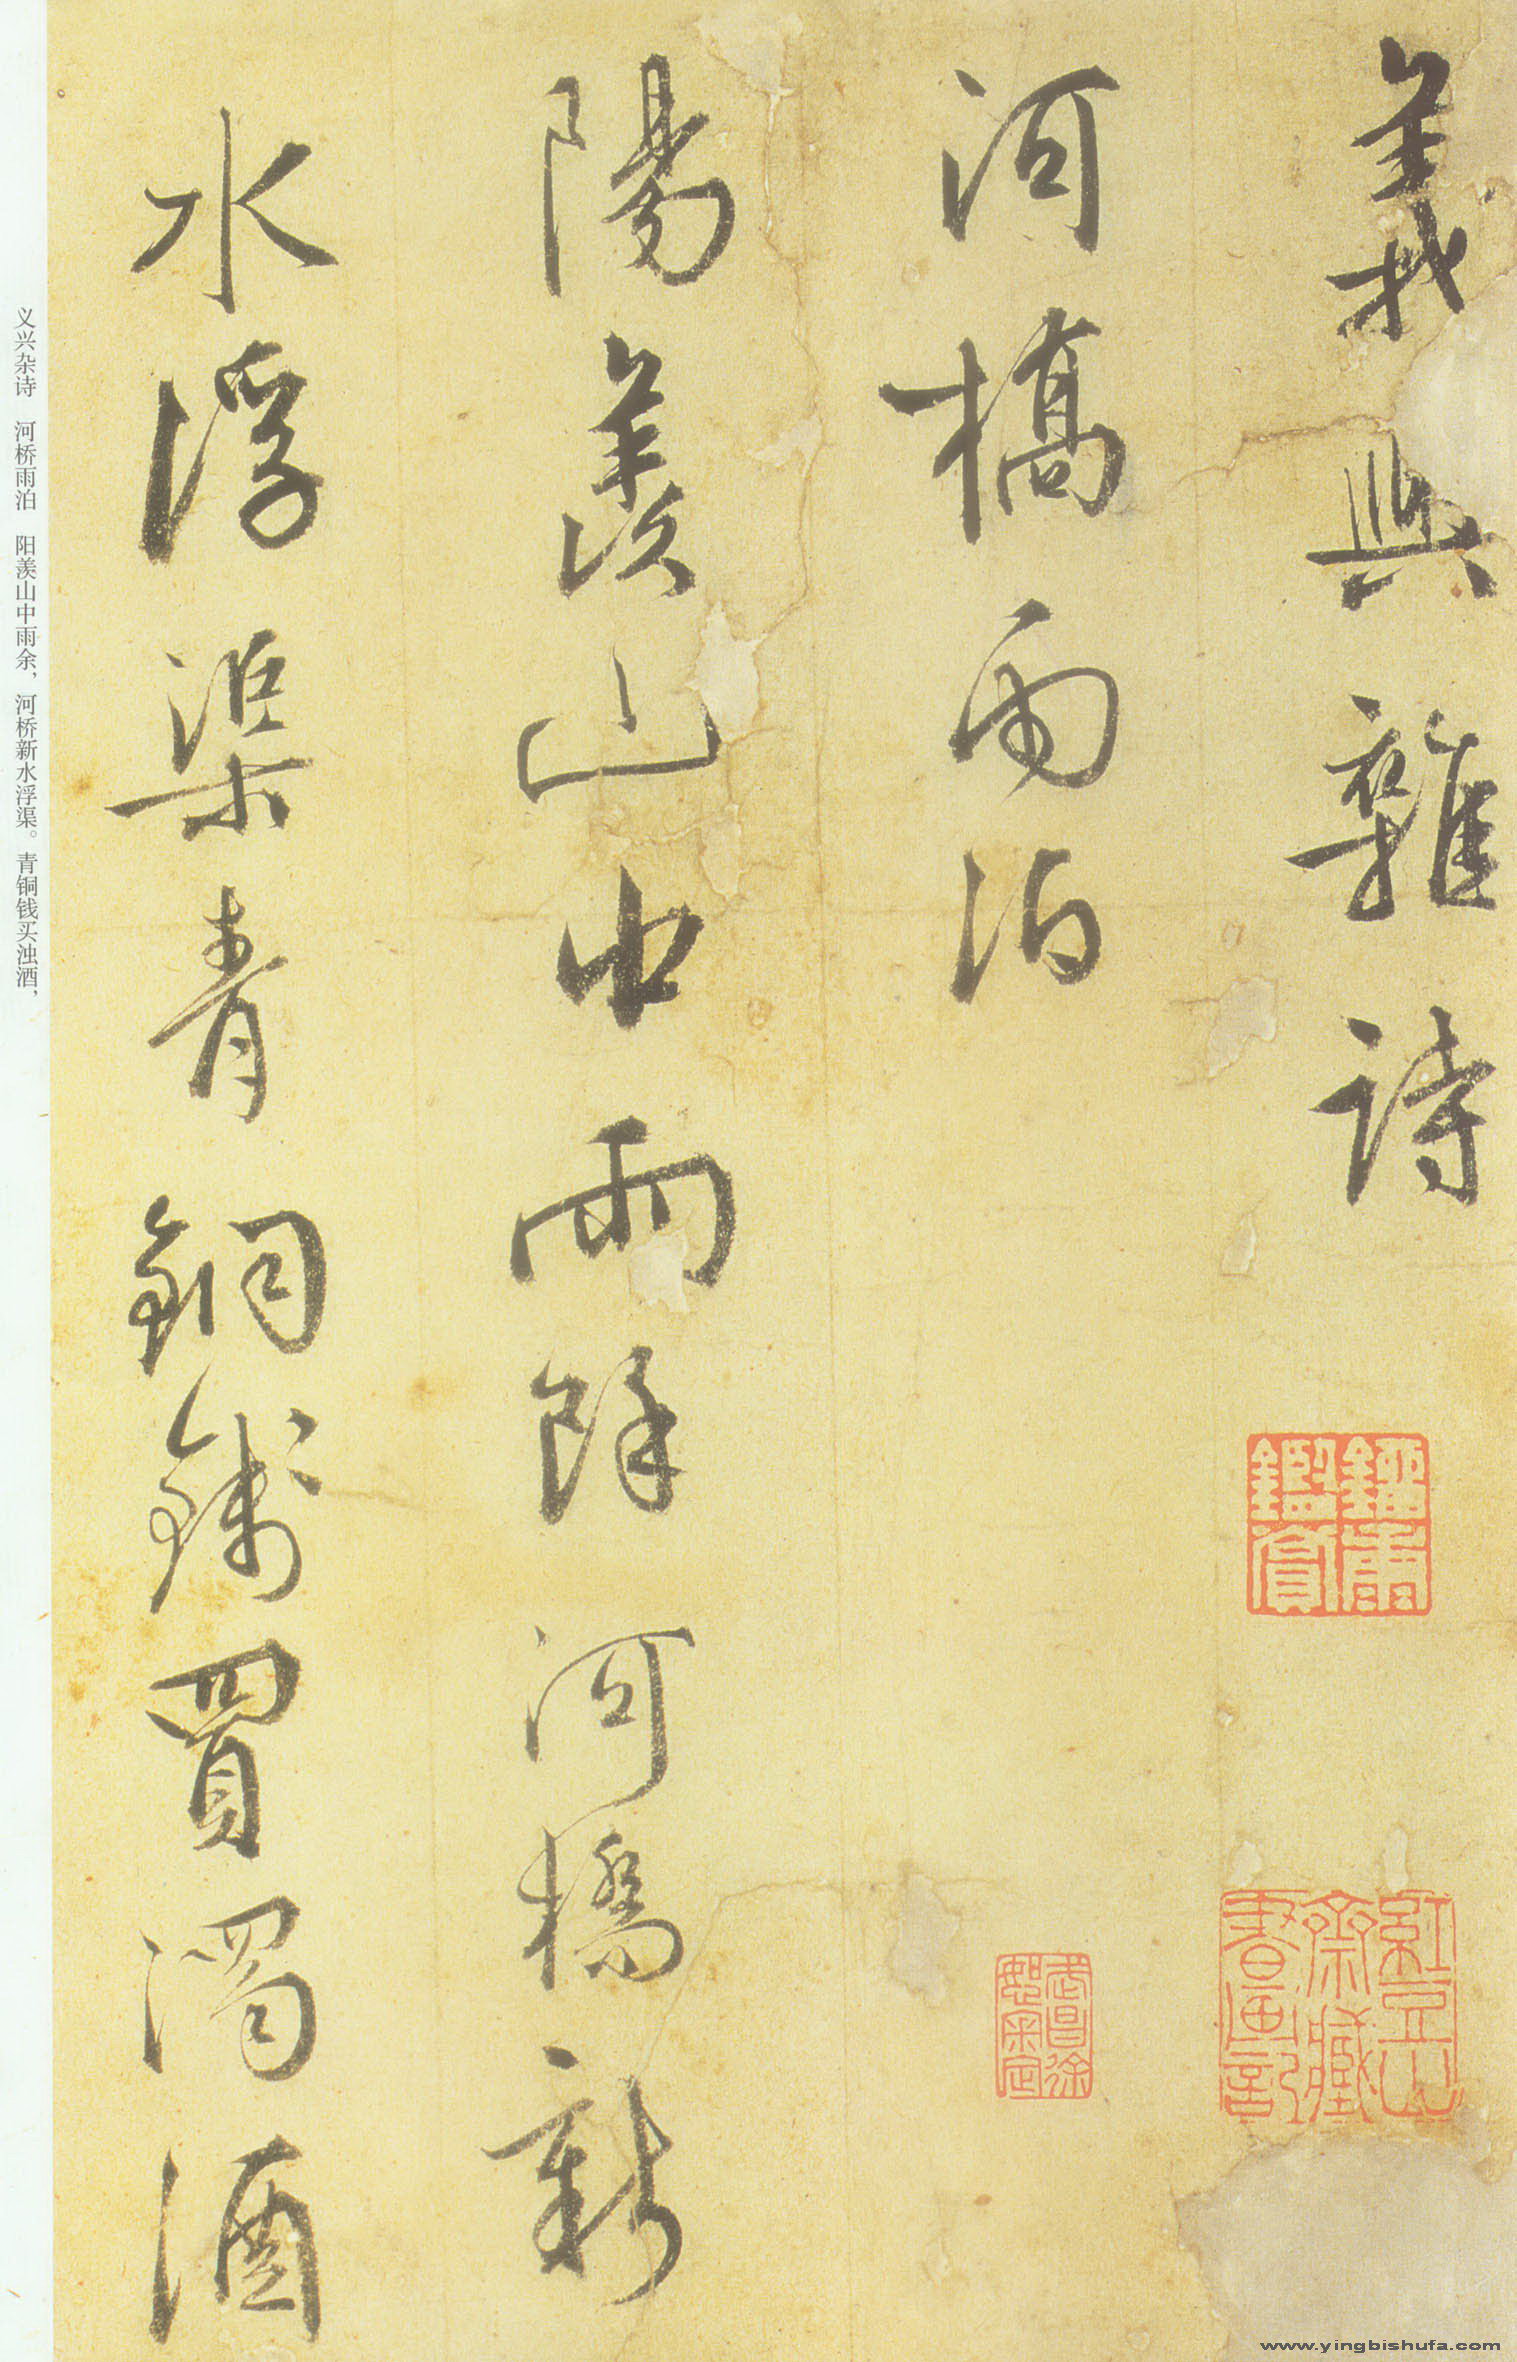 義興雜詩
河橋雨泊
陽羨山中雨餘河橋新
水浮渠青銅錢買濁酒
义兴杂诗 河桥雨泊 阳羡山中雨余，河桥新水浮渠。青铜钱买浊酒，
www.yingbishufa.com